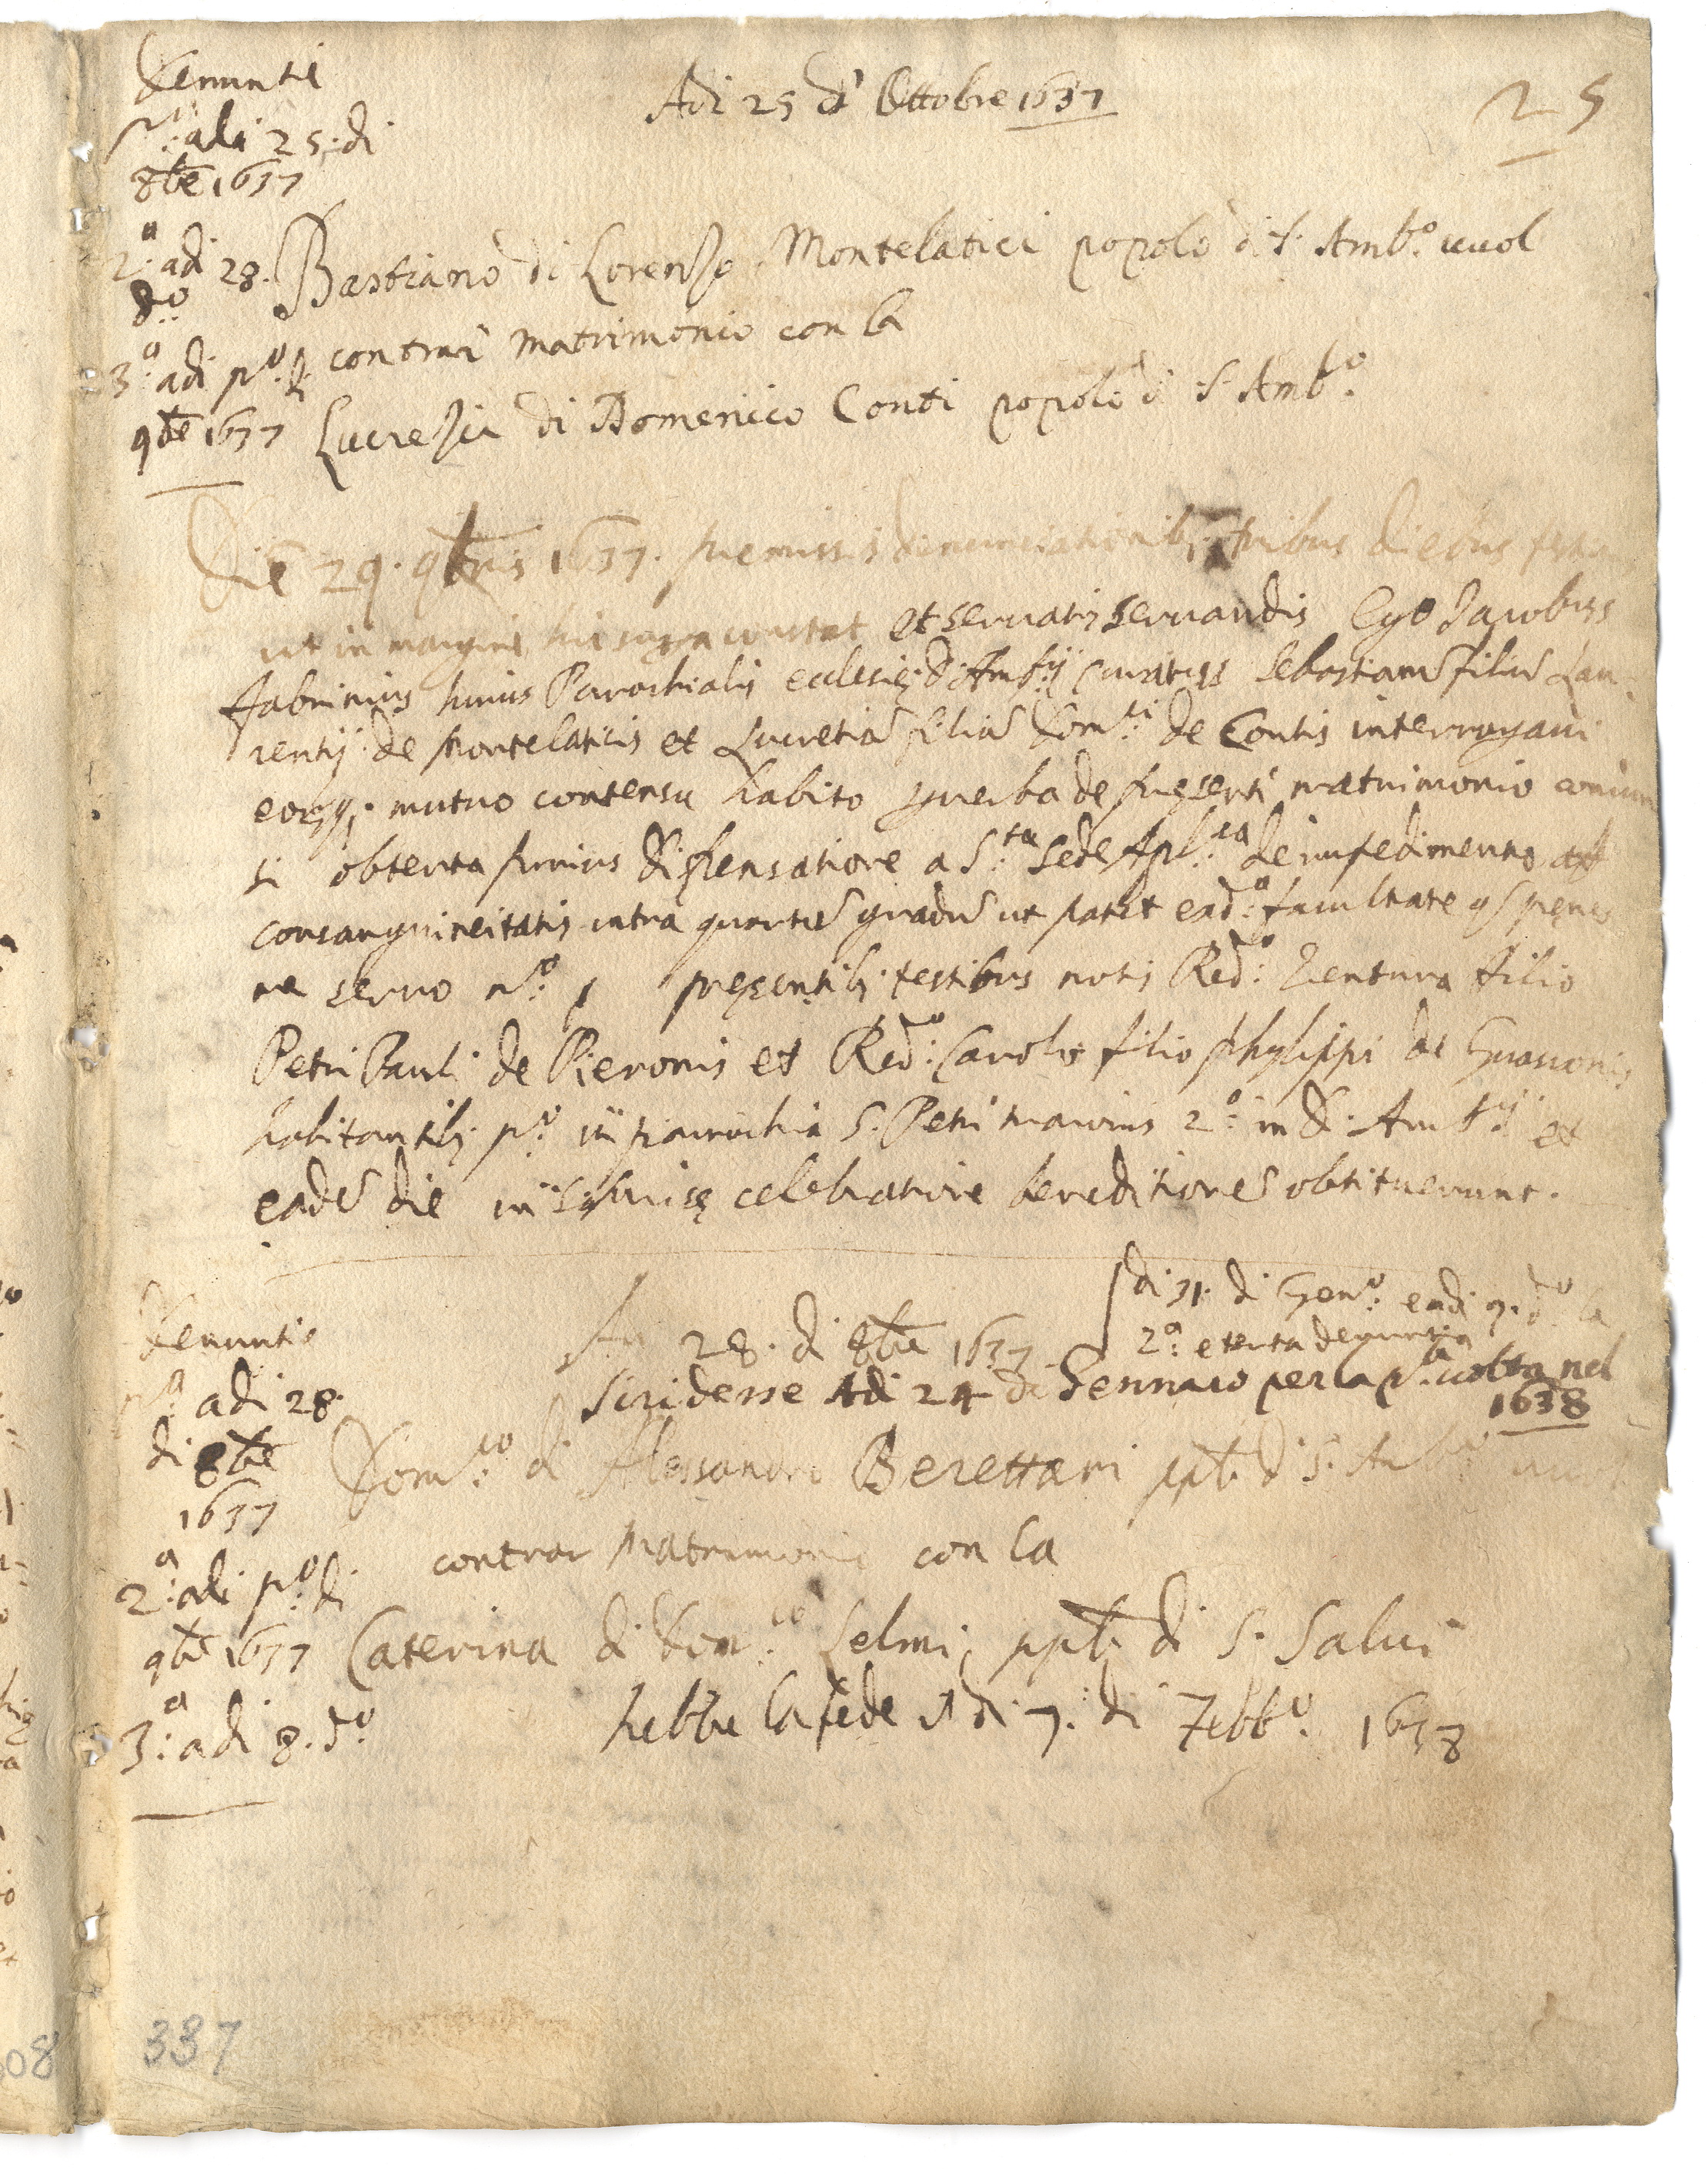 Adi 25 d' Ottobre 1637
25
Denuntie
p.ª: adi 25. di
8bre 1637
2.ª adi 28.
d.º
3.ª adi p.º di
9bre 1637
Bastiano di Lorenzo Montelatici popolo di S. Amb.º uuol
contrar matrimonio con la
Lucrezia di Domenico Conti popolo di S. Amb.º
Die 29. 9bris 1637. premissis denunciationib; tribus diebus
ut in margine hic supra constat et seruatis seruandis Ego Jacobus
Fabrinius huius Parochialis ecclesię S. Amb.ij Curatus Sebastianũ filiũ Lau-
rentij de Montelaticis et Lucretiã filiã Dom.ci de Contis interrogaui
eorq; mutuo consensu habito p uerba de presenti matrimonio coniun
si obtenta prius dispensatione a S.ta Sede Apl.ca de impedimento
consanguineitatis intra quartũ gradũ ut patet ead.ª facultate
me seruo n.º 1 pręsentib; testibus notis Red.º Uentura filio
Petri Pauli de Pieronis et Red.º Carolo filio Phylippi de
habitantib; p.º in parrochia S. Petri maioris 2.º in S. Amb.ij et
eadẽ die in missę celebratione benedictionẽ obtituerunt.
Denuntie
p.ª adi 28.
di 8bre
1637
2.ª adi p.º di
9bre 1637
3.ª adi 8. d.º
Adi 28. di 8bre 1637
adi 31. di Gen.º e adi 7. d.º la
2.ª e terza denuntia
Si ridesse Adi 24 di Gennaro per la p.ª uolta nel
1638
Dom.co di Alessandro Berettari ppl. di S. Amb.º uuol
contrar Matrimonio con la
Caterina di Dom.co Selmi ppl. di S. Salui
hebbe la fede Adi 7. di Febb.º 1638
337
08